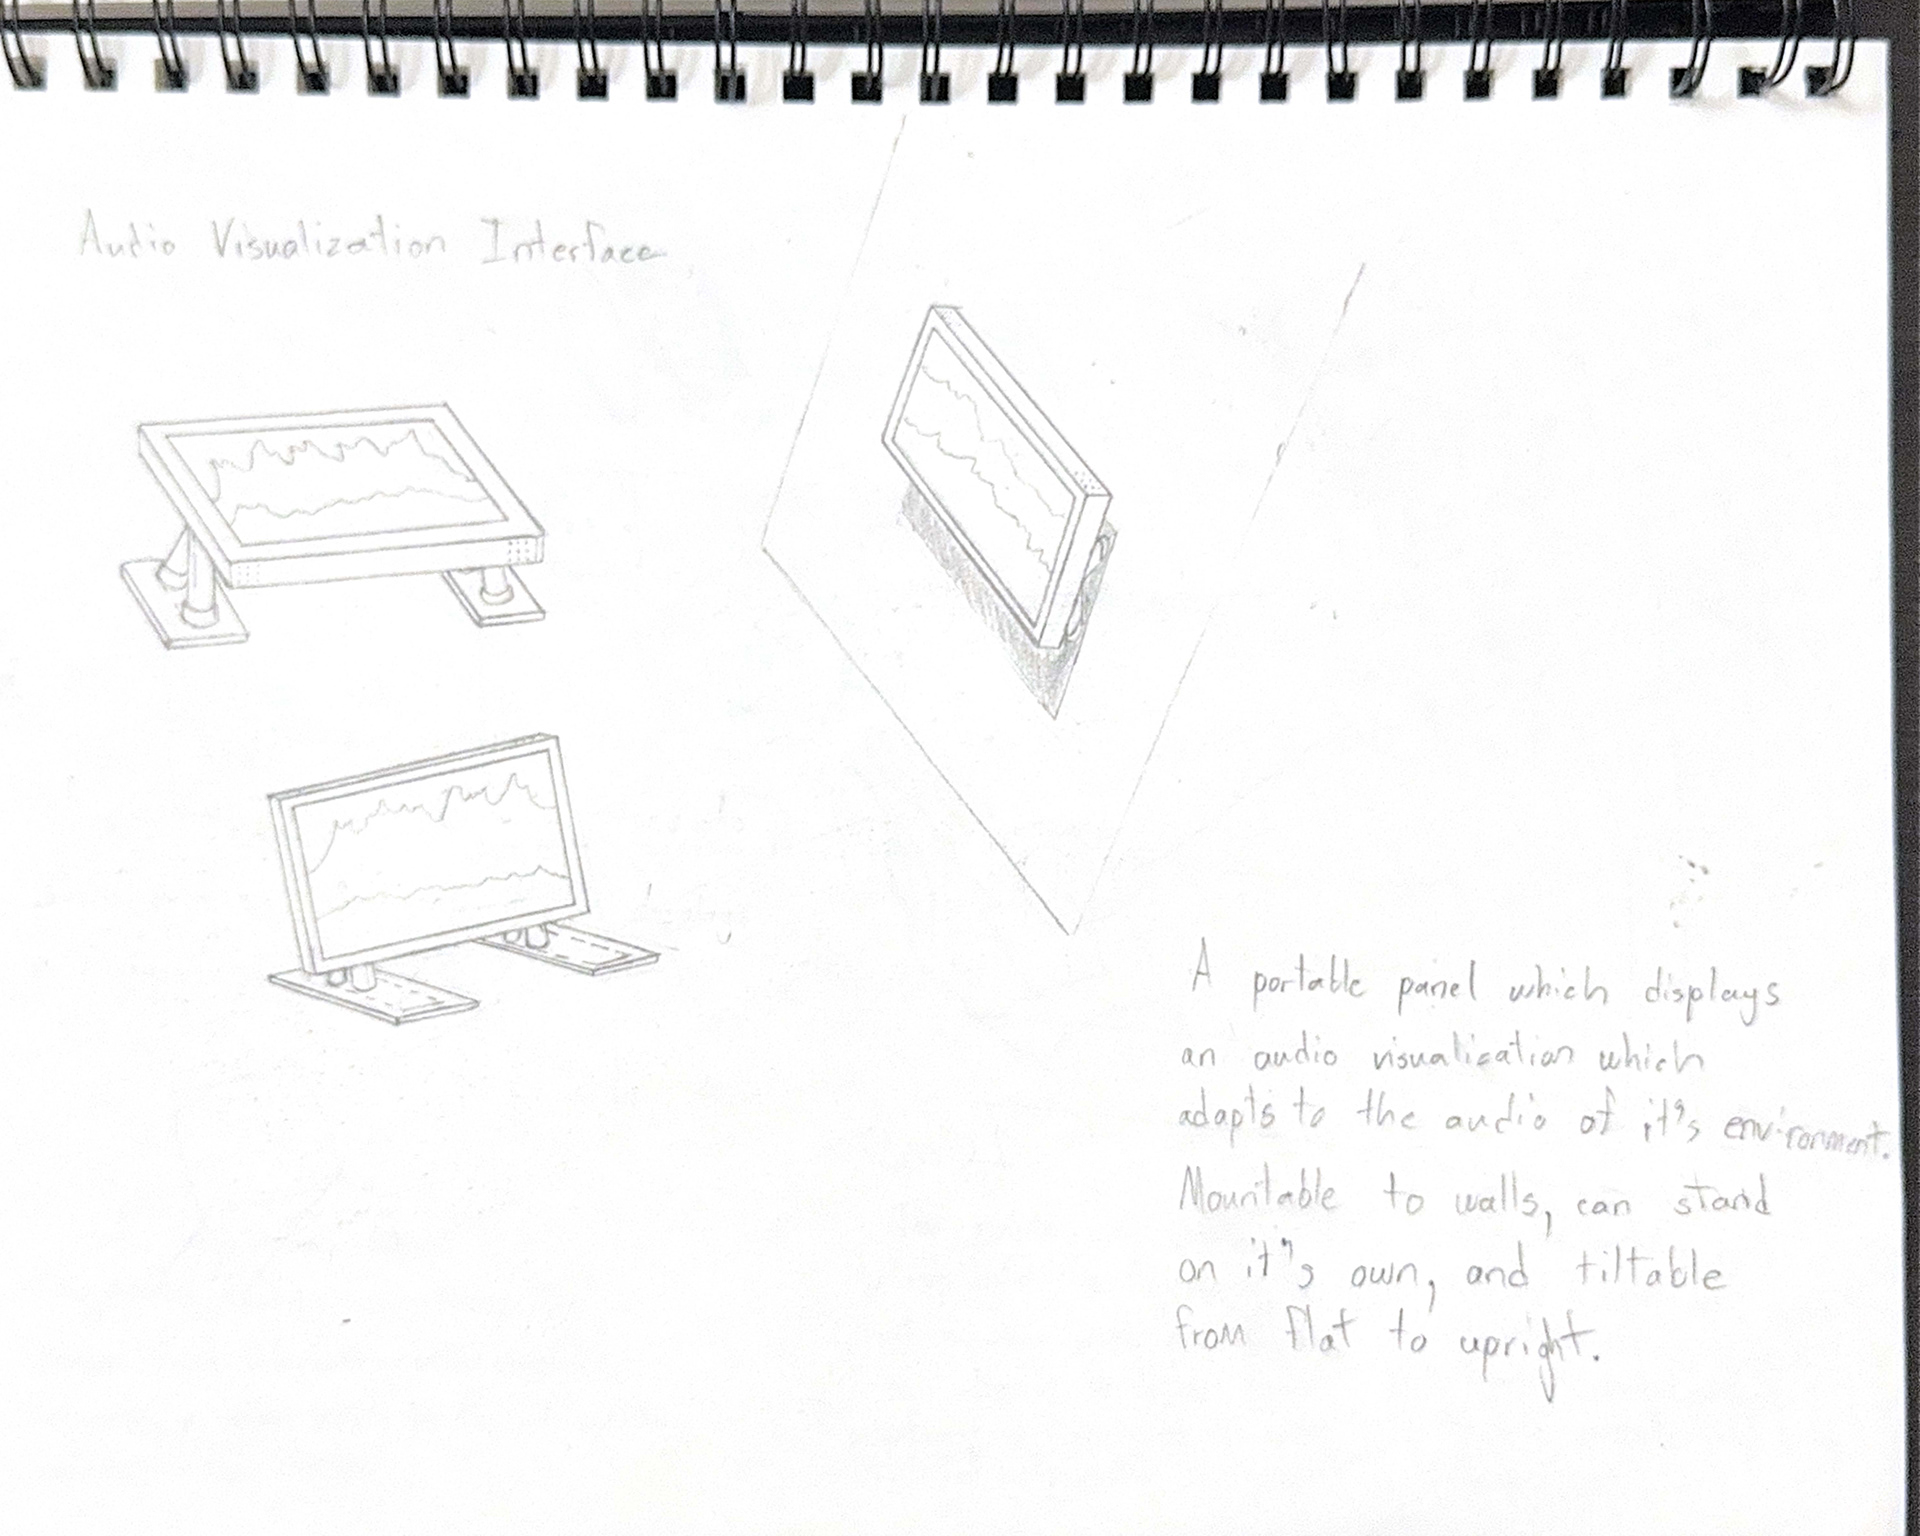 Audio Visualization Interface
A portable panel which displays
an audio visualization which
adapts to the audio of it's environment.
Mountable to walls, can stand
on it's own, and tiltable
from flat to upright.